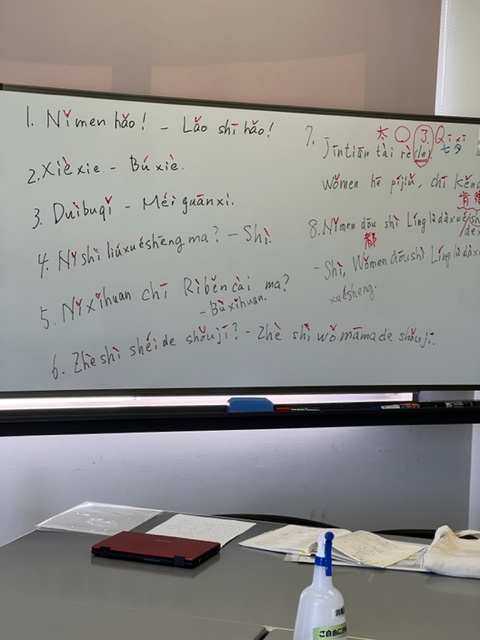 1. Nǐmen hǎo! - Lǎo shī hǎo!
2. Xièxie - Bú xiè.
3. Duìbuqǐ - Méi guānxi.
4. Nǐ shì liúxuéshēng ma? - Shì.
5. Nǐ xǐhuan chī Rìběn cài ma?
- Bù xǐhuan.
6. Zhè shì shéi de shǒujī? - Zhè shì wǒ māma de shǒujī.
7. Jīntiān tài rè
wǒmen hē píjiǔ, chī
8. Nǐmen dōu shì Línglādàxué
都
- Shì, Wǒmen dōu shì
xuésheng.
ご自由に